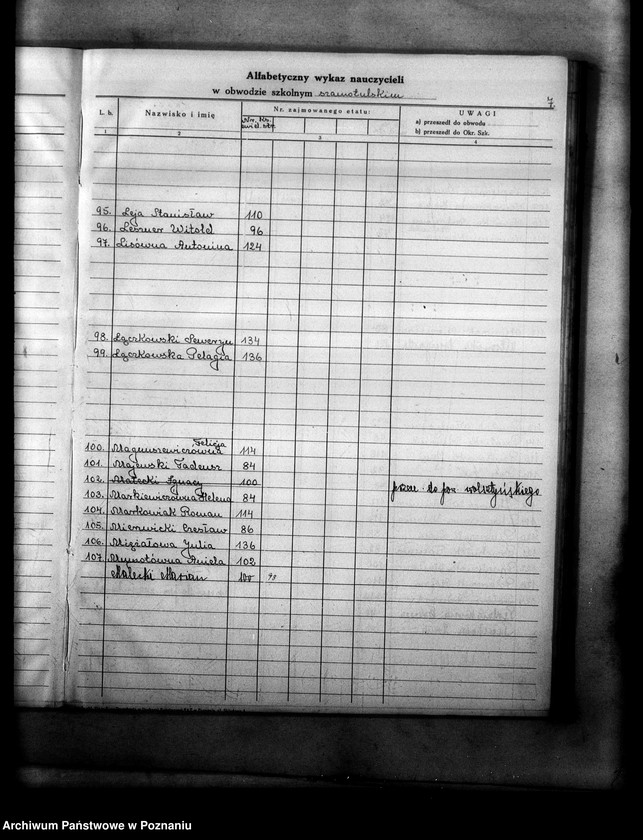 Alfabetyczny wykaz nauczycieli
w obwodzie szkolnym szamotulskim
7
L. b. Nazwisko i imię Nr. zajmowanego etatu: UWAGI
a) przeszedł do obwodu
b) przeszedł do Okr. Szk.
1 2 3 4
95. Leja Stanisław 110
96. Witold 96
97. Lisówna Antonina 124
98. Łączkowski Seweryn 134
99. Łączkowska Pelagia 136
Felicja
100. Maguszewiczówna 114
101. Majewski Tadeusz 84
102. Małecki Ignacy 100 przen. do pow. wolsztyńskiego
103. Markiewiczówna Helena 84
104. Markowiak Roman 114
105. Czesław 86
106. Julia 136
107. Aniela 102
Małecki Marian 100 98
Archiwum Państwowe w Poznaniu